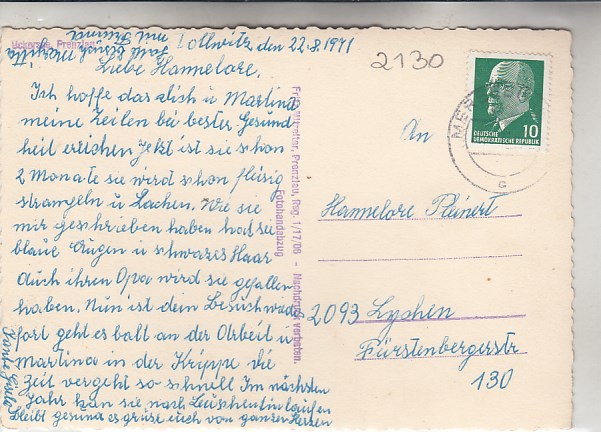 Uckersee, Prenzlau
Lollwitz, den 22.8.1971
2130
Liebe Hannelore,
Ich hoffe das dich u Martina
meine Zeilen bei bester Gesund
heit erreichen Jetzt ist sie schon
2 Monate sie wird schon fleisig
strampeln u Lachen. Wie sie
mir geschrieben haben hat sie
blaue Augen u schwarzes Haar
auch ihren Opa wird sie gefallen
haben. Nun ist dein Besuch wieder
fort geht es balt an der Arbeit u
Martina in der Krippe die
Zeit vergeht so schnell Im nächsten
Jahr kan sie nach
bleibt gesund es grüst euch von ganzen Herzen
Tante Gisela
mit
Fritz Prenzlau, Reg. 1/17/06 - Nachdruck verboten.
Fotohandabzug
DEUTSCHE
DEMOKRATISCHE REPUBLIK
10
An
Hannelore Pleinert
2093 Lychen
Fürstenbergerstr
130